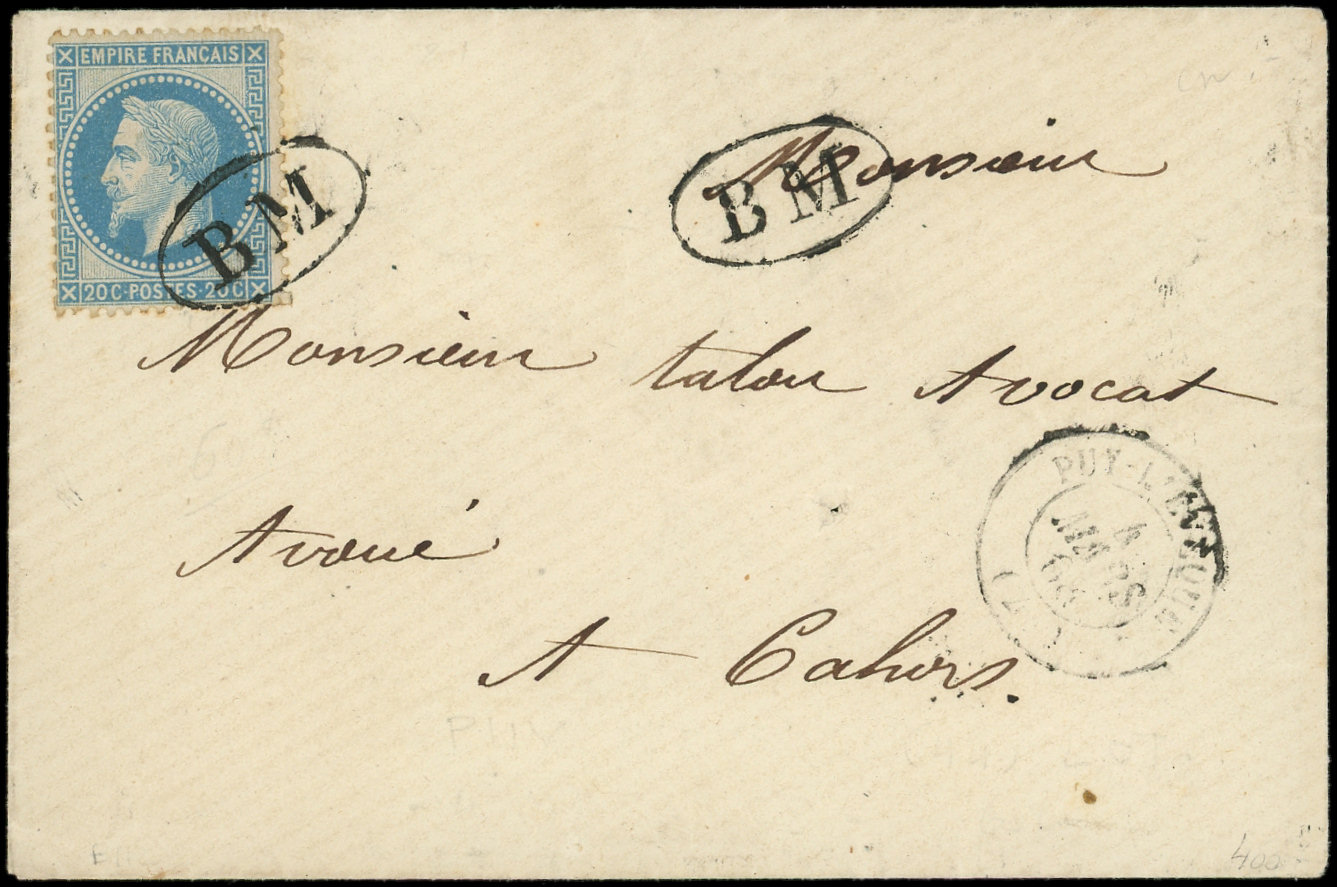 EMPIRE FRANCAIS
20 C·POSTES·20 C
BM
BM
Monsieur
Monsieur talou Avocat
Avoué
A Cahors.
PUY-L'EVEQUE
4
MARS
68
400